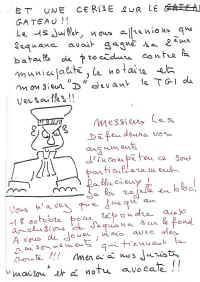 ET UNE CERISE SUR LE GATEAU
GATEAU!!
Le 15 juillet, nous apprenions que
Sequana avait gagné sa 2ème
bataille de procédure contre la
municipalité, le notaire et
monsieur "D" devant le TGI de
Versailles!!
Messieurs Les
Défendeurs vos
arguments
d'incompétence sont
particulièrement
fallacieux!
Je la rejette en bloc!
Vous n'avez que jusqu'au
18 octobre pour répondre aux
conclusions de Sequana sur le fond
A vous de jouer mais avec des
raisonnements qui tiennent la
route!!! Merci à nos juristes
"maison" et à notre avocate!!